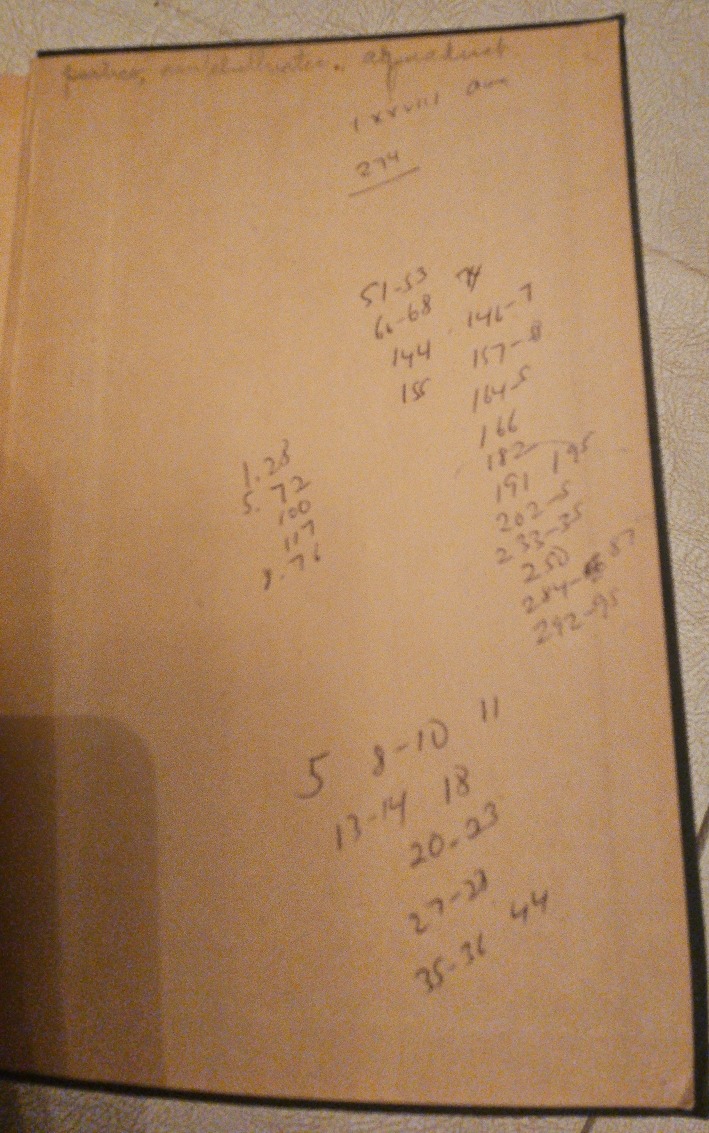 274
51-53 74
66-68 146-7
144 157-8
155 164-5
166
182 195
191
202-5
233-35
250
284-87
292-95
1.28
5.72
100
117
8.76
5 8-10 11
13-14 18
20-23
27-28
35-36 44